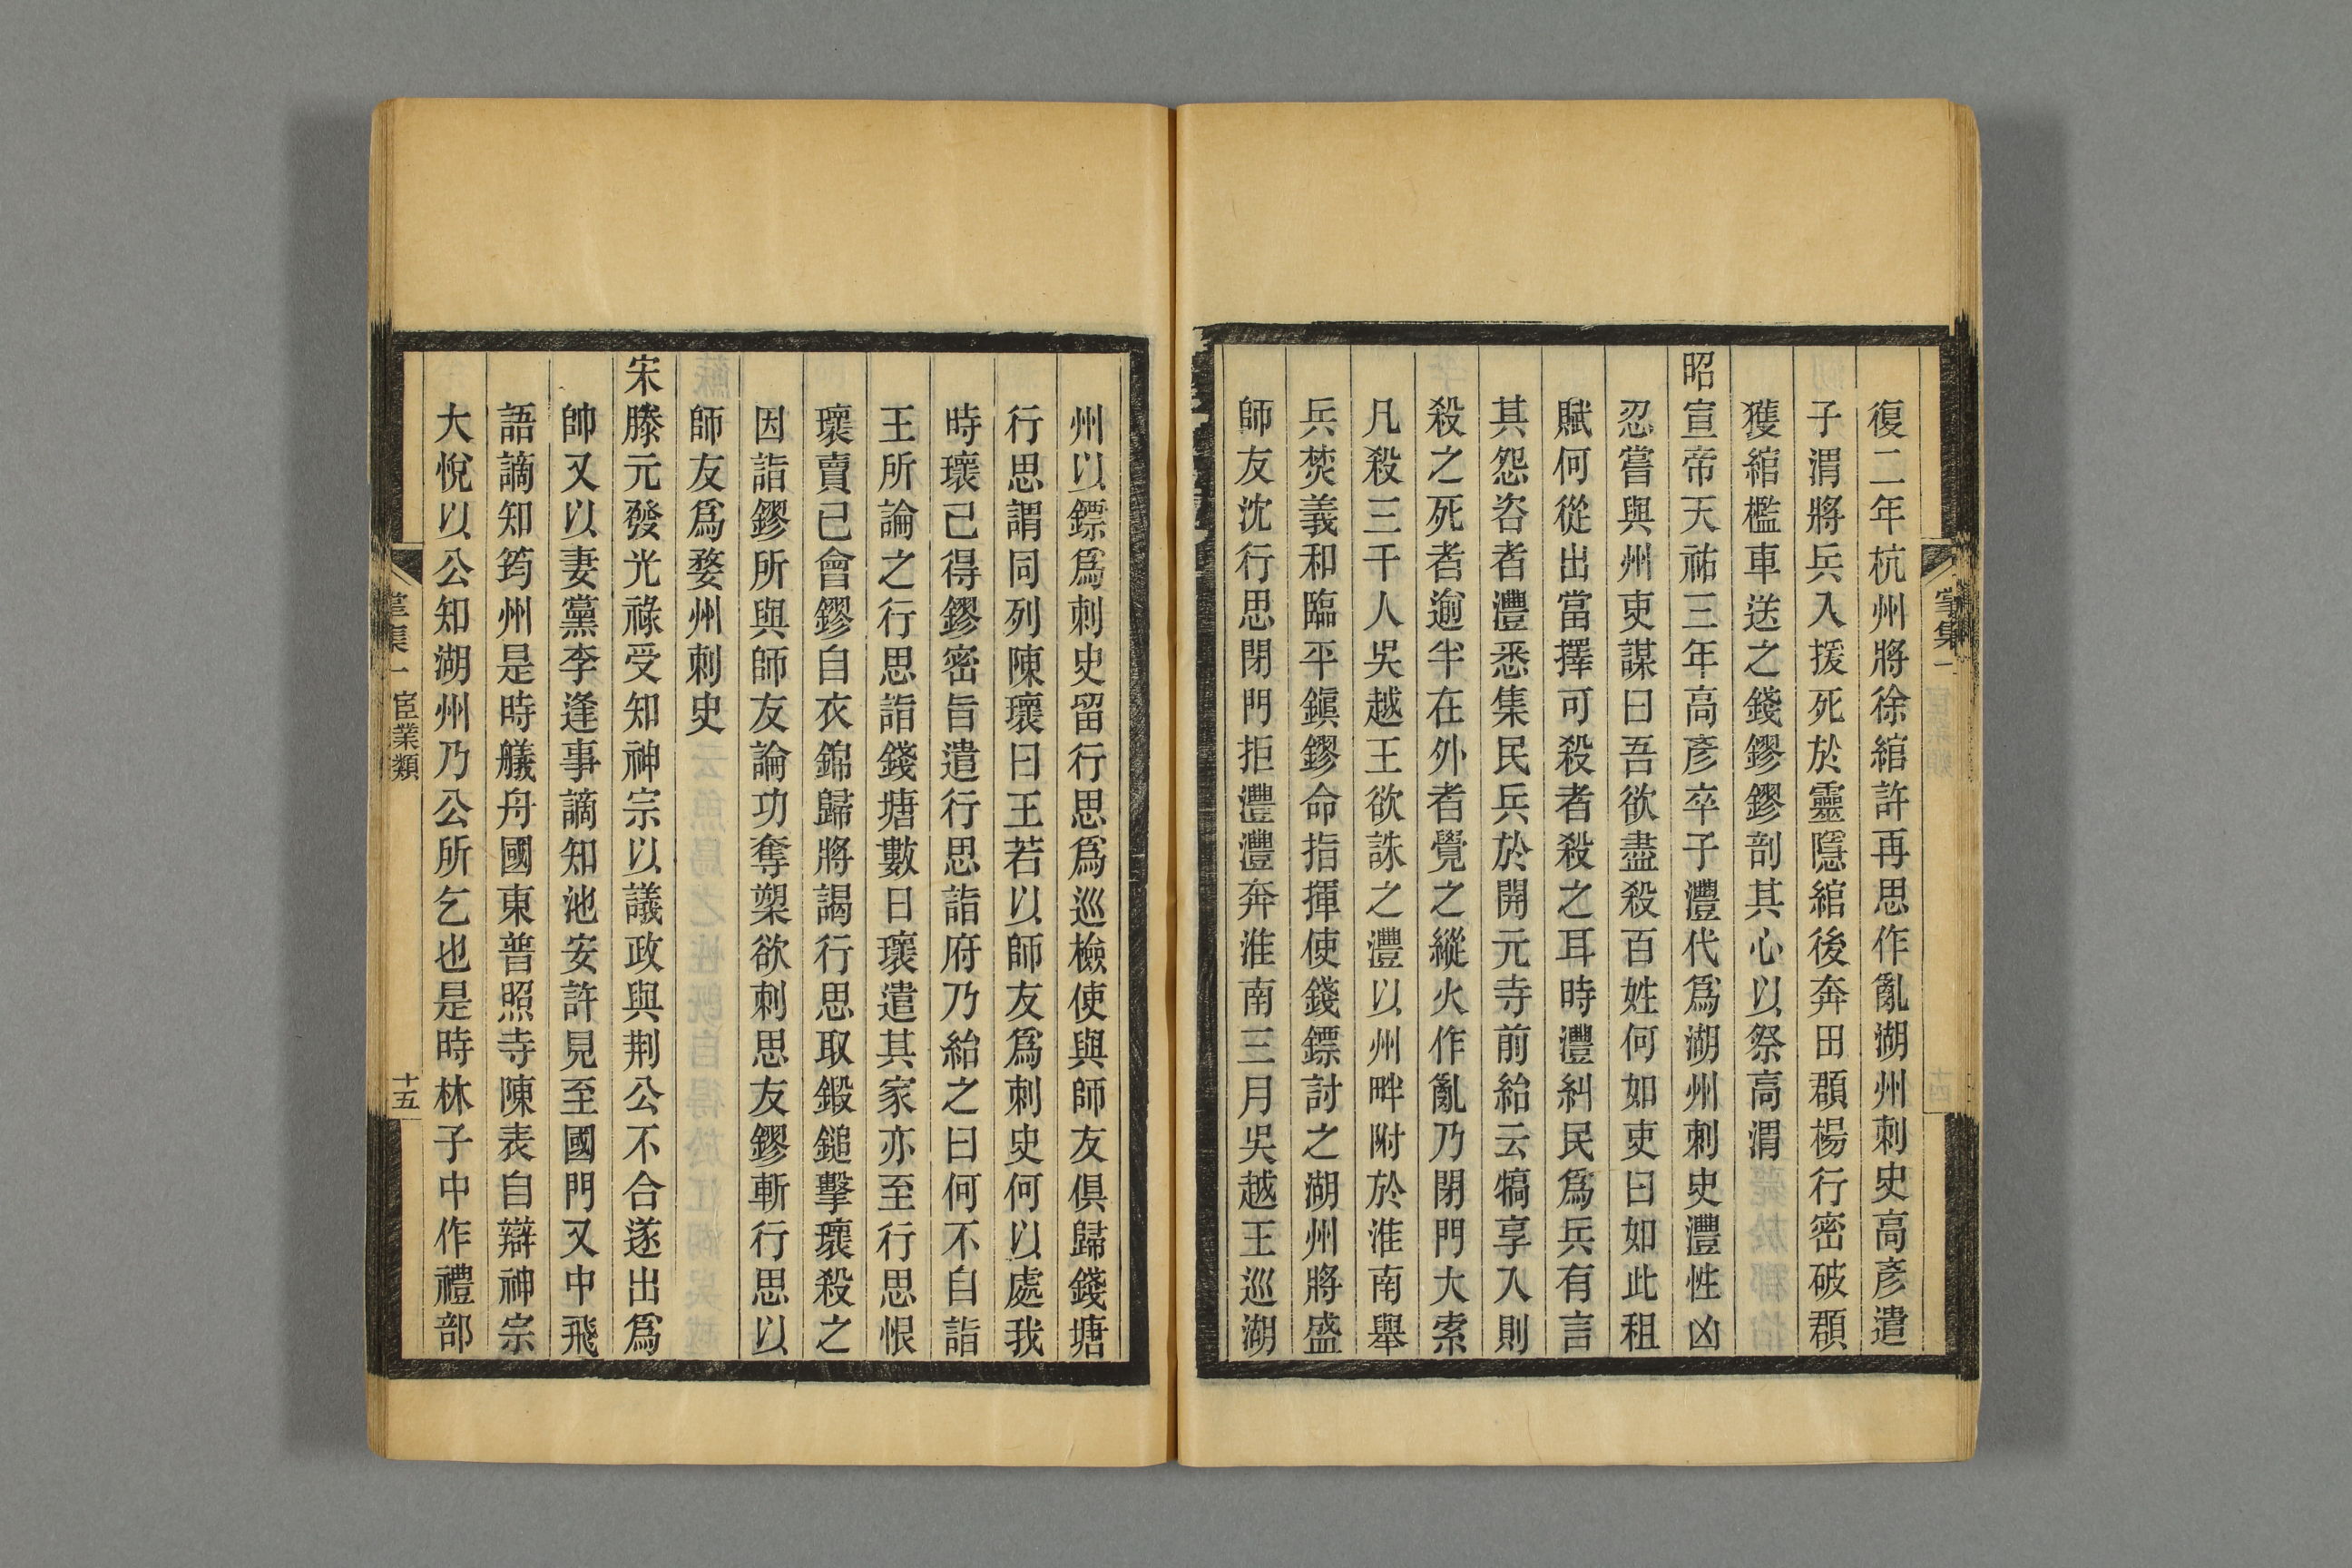 復二年杭州將徐綰許再思作亂湖州刺史高彥遣
子渭將兵入援死於靈隱綰後奔田頵楊行密破頵
獲綰檻車送之錢鏐鏐剖其心以祭高渭
昭宣帝天祐三年高彥卒子灃代爲湖州刺史灃性凶
忍嘗與州吏謀曰吾欲盡殺百姓何如吏曰如此租
賦何從出當擇可殺者殺之耳時灃糾民爲兵有言
其怨咨者灃悉集民兵於開元寺前紿云犒享入則
殺之死者逾半在外者覺之縱火作亂乃閉門大索
凡殺三千人吳越王欲誅之灃以州畔附於淮南舉
兵焚義和臨平鎭鏐命指揮使錢鏢討之湖州將盛
師友沈行思閉門拒灃灃奔淮南三月吳越王巡湖
州以鏢爲刺史留行思爲巡檢使與師友俱歸錢塘
行思謂同列陳瓌曰王若以師友爲刺史何以處我
時瓌已得鏐密旨遣行思詣府乃紿之曰何不自詣
王所論之行思詣錢塘數日瓌遣其家亦至行思恨
瓌賣已會鏐自衣錦歸將謁行思取鍛鎚擊瓌殺之
因詣鏐所與師友論功奪槊欲刺思友鏐斬行思以
師友爲婺州刺史
宋滕元發光祿受知神宗以議政與荆公不合遂出爲
帥又以妻黨李逢事謫知池安許見至國門又中飛
語謫知筠州是時艤舟國東普照寺陳表自辯神宗
大悅以公知湖州乃公所乞也是時林子中作禮部
掌集一 宦業類 十五